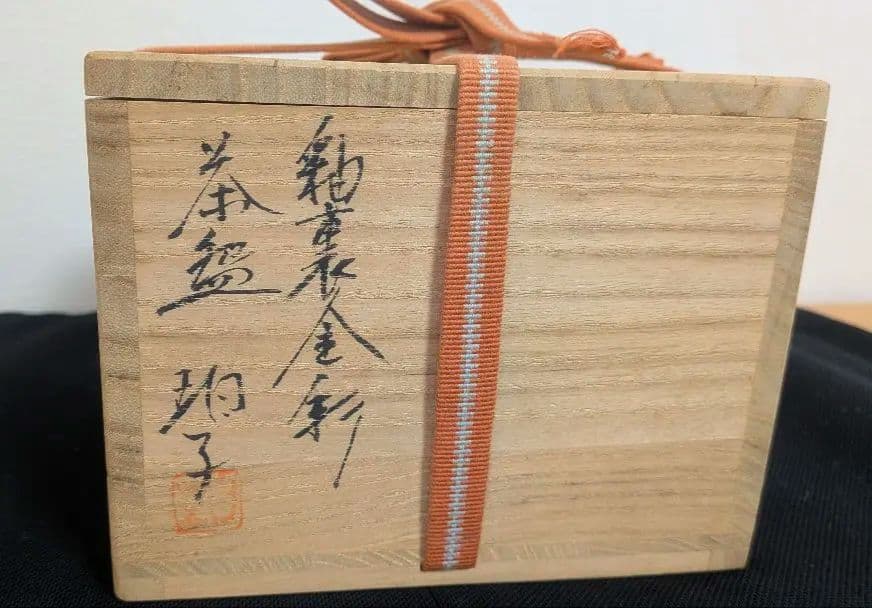 釉裏金彩
茶盌 珀子